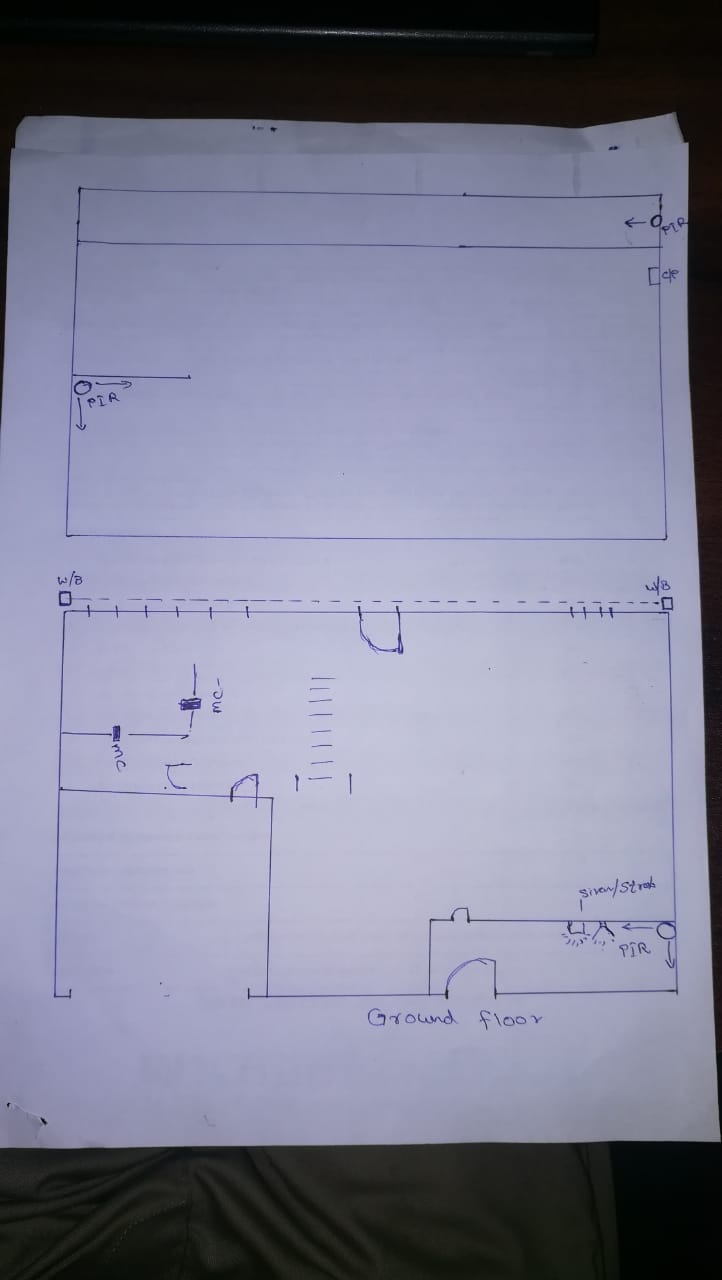 PIR
C/P
PIR
W/B
W/B
MC
MC
Siren/Strob
PIR
Ground floor